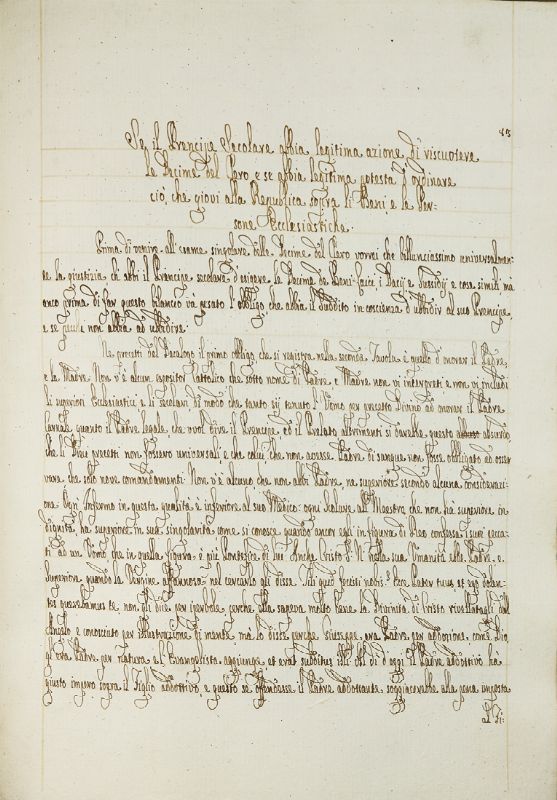 83
Se il Prencipe Secolare abbia legitima azione di riscuotere
le Decime del Clero e se abbia legitima potestà d'ordinare
ciò, che giovi alla Republica sopra li Beni, e le Per:
sone Ecclesiastiche.
Prima di venire all'esame singolare delle Decime del Clero vorrei che bilanciassimo universalmen-
te la giustizia ch'abbi il Prencipe secolare d'esigere le Decime de Beni laici, i Dacij e Sussidij e cose simili, mà
anco prima di far questo bilancio và pesato l'obbligo che abbia il suddito in coscienza d'ubbidir al suo Prencipe,
e se non abbia ad ubbidire.
Ne precetti del Decalogo il primo obbligo, che si registra nella seconda Tavola è quello d'onorar il Padre,
e la Madre. Non v'è alcun espositor Cattolico che sotto nome di Padre, e Madre non vi interpreti e non vi includi
li superiori Ecclesiastici e li secolari, di modo che tanto sij tenuto l'Uomo per precetto Divino ad onorar il Padre
carnale quanto il Padre legale che vuol dire il Prencipe, ed il Prelato altrimenti si darebbe questo assurdo
che li Divi precetti non fossero universali, e che colui, che non avesse Padre di sangue non fosse obbligato ad osser
vare che solo nove comandamenti. Non v'è alcuno che non abbi Padre, ne superiore secondo alcuna considerazi-
one. Ogn'Infermo in questa qualità è inferiore al suo Medico; ogni scolare all Maestro, che non hà superiore in
dignità, hà superiore in sua singolarità come si conosce quando ancor essi in figura di Reo confessa i suoi pecca-
ti ad un Uomo, che in quella figura è più Pontefice di lui. Anche Cristo S. N. nella sua Umanità ebbe Padre, e
Superiora quando la Vergine affannosa nel cercarlo gli disse. Fili quid fecisti nobis? Ecce Pater tuus et ego dolen-
tes querebamus te, non gli disse per iperbole perche ella sapeva molto bene la Divinità di Cristo rivellatagli dall'
Angelo e conosciuto per illustrazione di mente, mà lo disse perche Giuseppe era Padre per addozione, come Dio
gl'era Padre per natura e l'Evangelista aggiunge et erat subditus illi, che di oggi il Padre addottivo hà
giusto impero sopra il Figlio addottivo, e questo se offendesse il Padre addottante, soggiacerebbe alla pena imposta
al Fi: